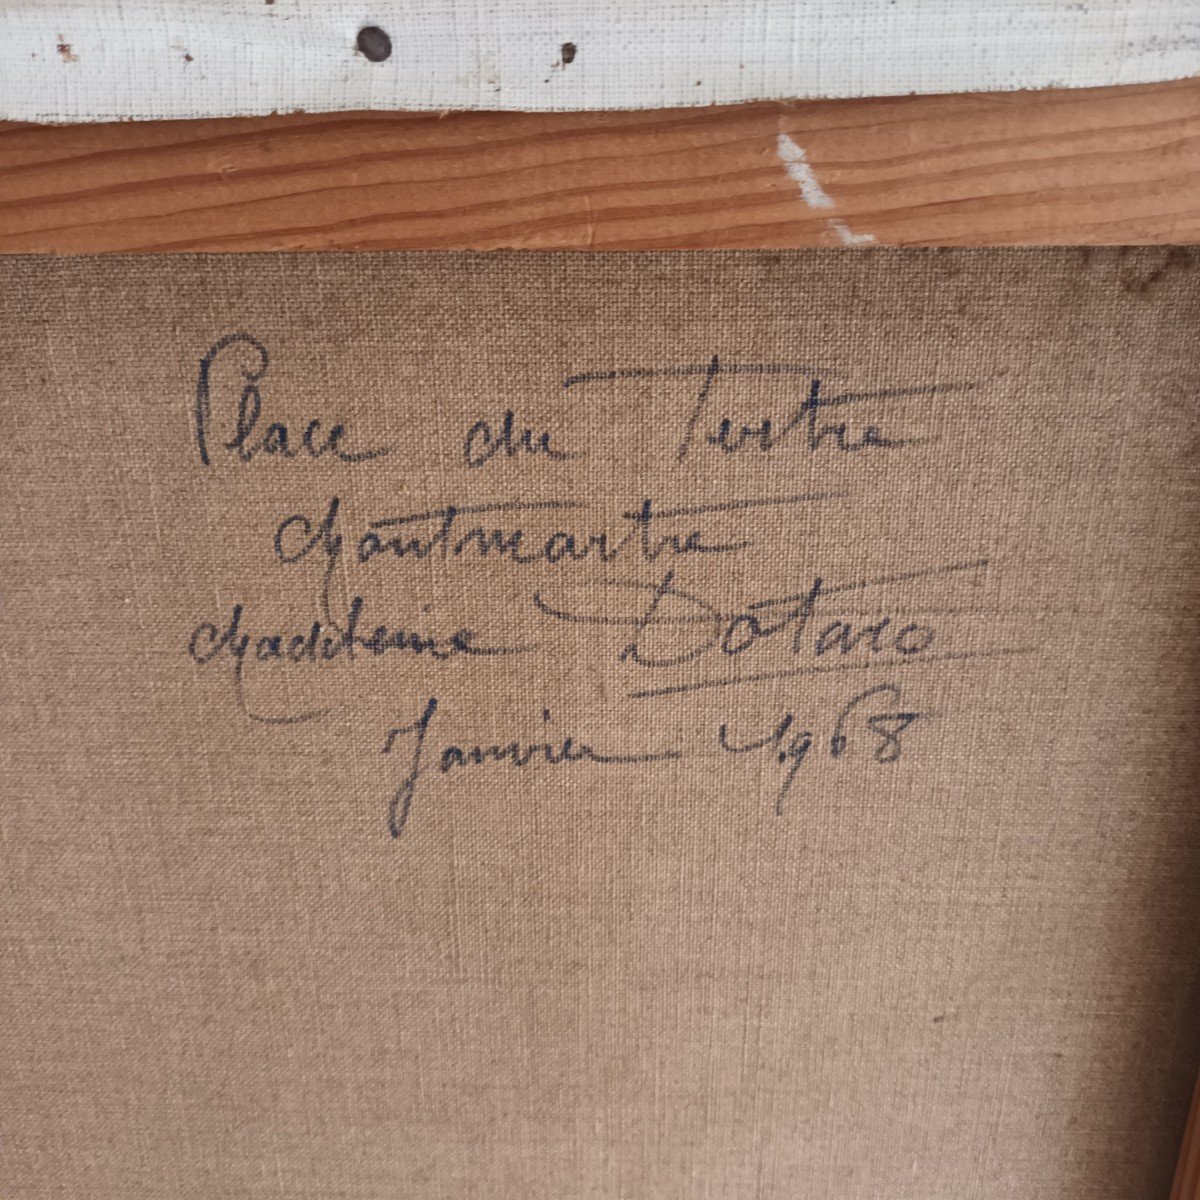 Place du Tertre
Montmartre
Madeleine Dotaro
Janvier 1968